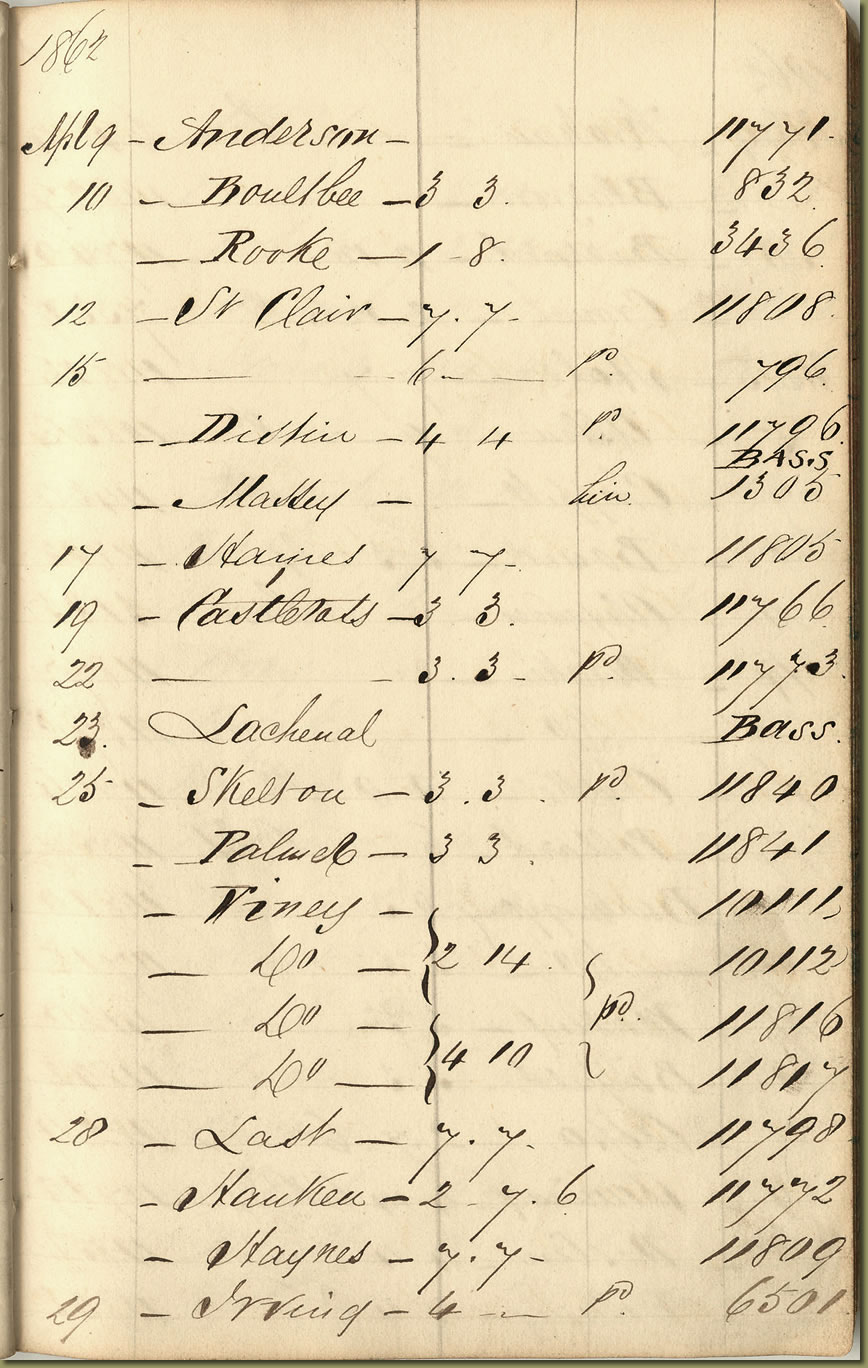 1862
Apl 9 - Anderson - 11771.
10 - Boultbee - 3 3. 832
- Rooke - 1 - 8. 3436
12 - St Clair - 7. 7 - 11808.
15 — - 6 - — pd. 796.
- Distin - 4 4 pd. 11796.
BASS
- Massey - 1305
17 - Haines 7 7 - 11805
19 - - 3 3. 11766
22 — - 3. 3 - pd. 11773.
23. Lachenal Bass.
25 - Skelton - 3. 3. pd. 11840
- Palmer - 3 3. 11841
- Viney - 10111
— Do — 2 14. 10112
— Do — pd. 11816
— Do — 4 10 11817
28 - Last - 7. 7 - 11798
- Hanken - 2 - 7. 6 11772
- Haynes - 7. 7 - 11809
29 - Irving - 4 - — pd. 6501